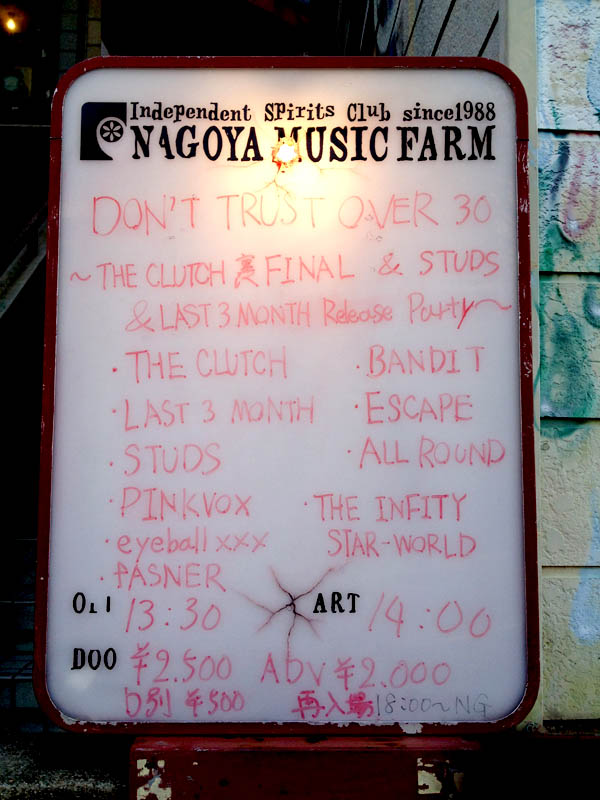 Independent Spirits Club since1988
NAGOYA MUSIC FARM
DON'T TRUST OVER 30
~THE CLUTCH 裏FINAL & STUDS
& LAST 3 MONTH Release Party~
・THE CLUTCH
・LAST 3 MONTH
・STUDS
・PINKVOX
・eyeball xxx
・FASNER
・BANDIT
・ESCAPE
・ALL ROUND
・THE INFITY
STAR-WORLD
13:30
ART 14:00
DOO ¥2.500 ADV ¥2.000
D別 ¥500 再入場18:00~NG